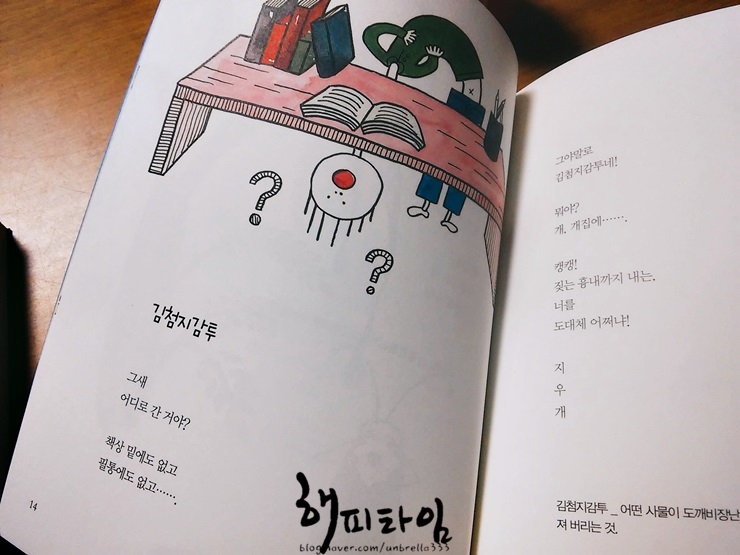 김첨지감투
그새
어디로 간 거야?
책상 밑에도 없고
필통에도 없고…….
14
그야말로
김첨지감투네!
뭐야?
개. 개집에…….
캥캥!
짖는 흉내까지 내는.
너를
도대체 어쩌냐!
지
우
개
김첨지감투 _ 어떤 사물이 도깨비장난
져 버리는 것.
해피타임
blog.naver.com/unbrella333